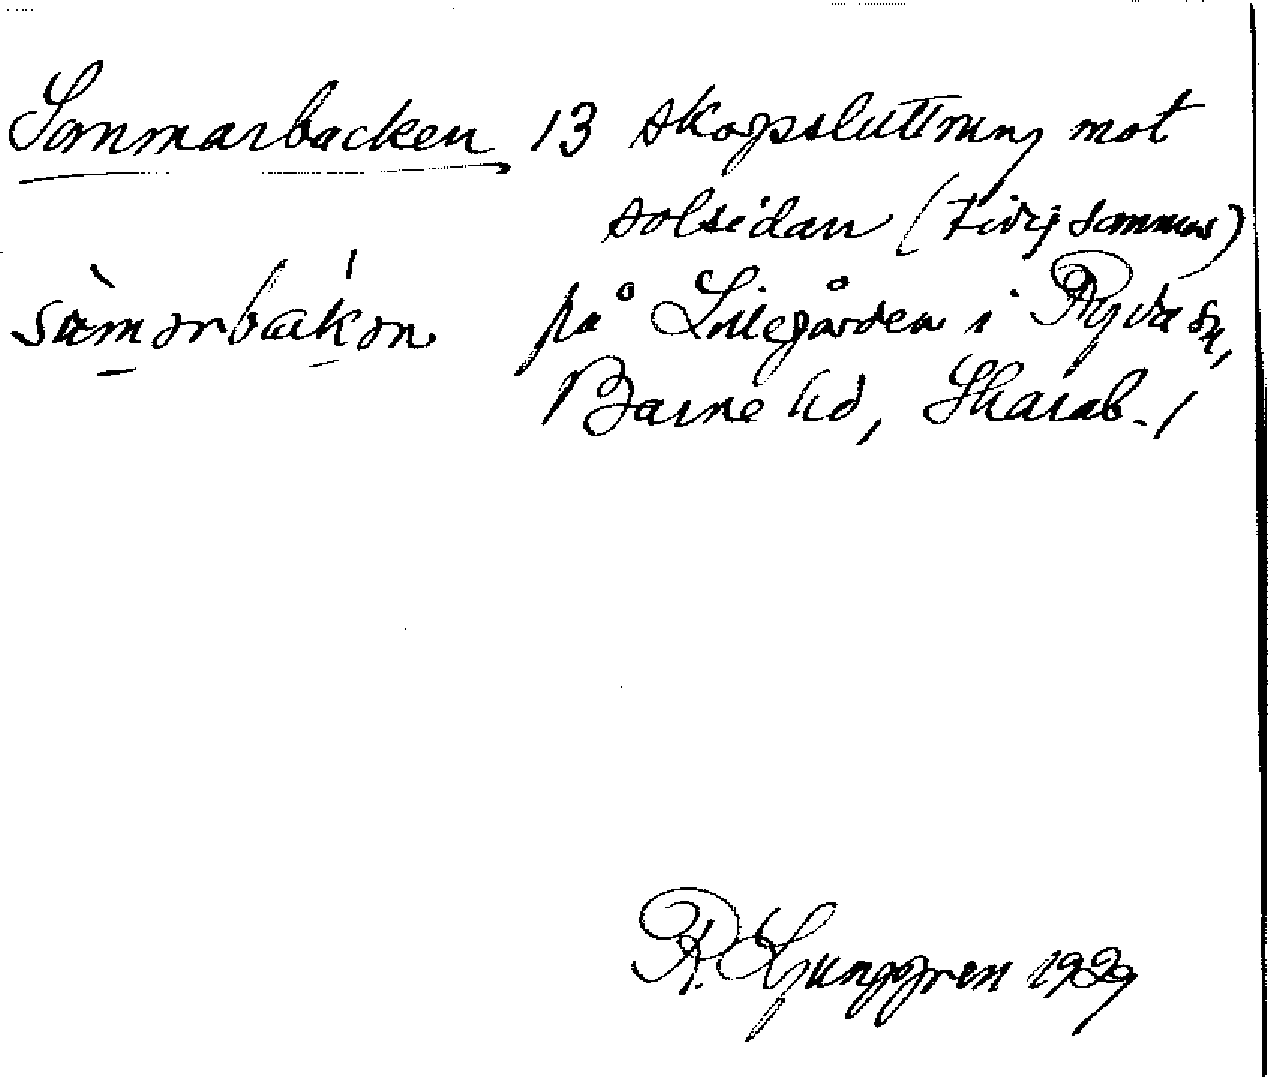 Sommarbacken 13 skogssluttning mot
solsidan (tidig sommar)
sòmərbákən på Lillegården i Ryda sn,
Barne hd, Skarab. /
R. Ljunggren 1929